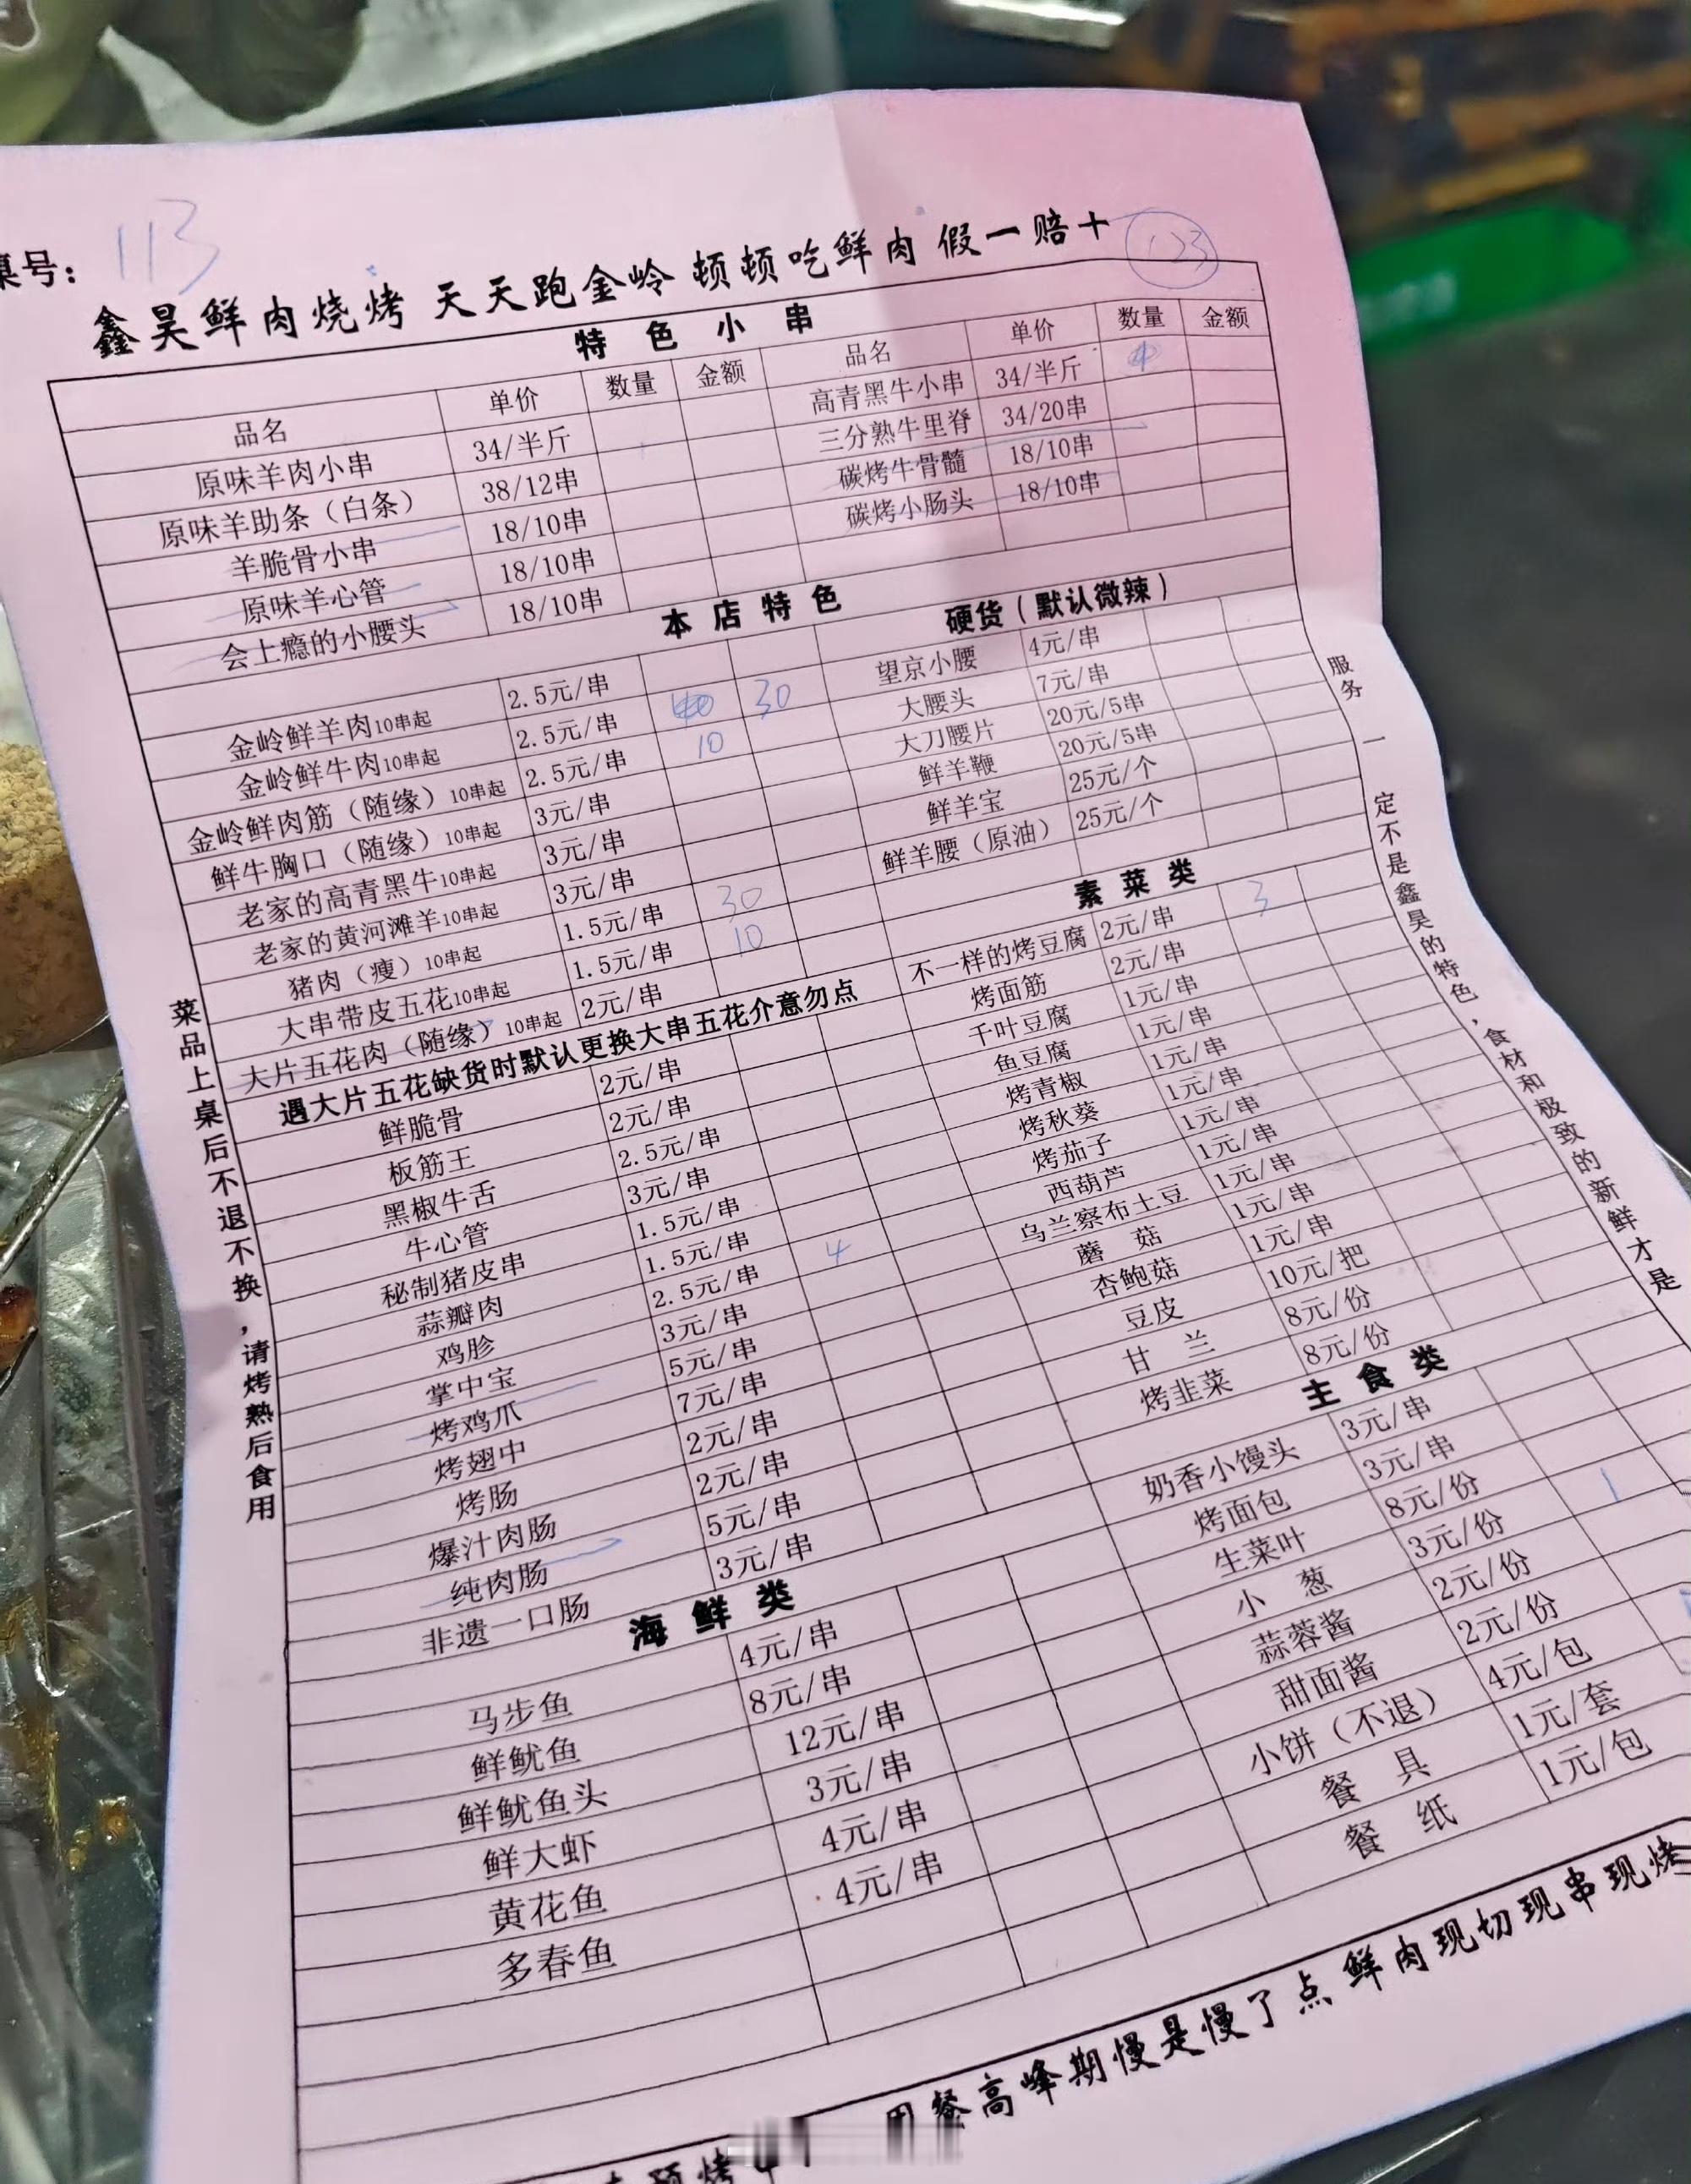 桌号：113
鑫昊鲜肉烧烤 天天跑金岭 顿顿吃鲜肉 假一赔十 123
特色小串
品名 单价 数量 金额 品名 单价 数量 金额
原味羊肉小串 34/半斤 高青黑牛小串 34/半斤
原味羊助条（白条） 38/12串 三分熟牛里脊 34/20串
羊脆骨小串 18/10串 碳烤牛骨髓 18/10串
原味羊心管 18/10串 碳烤小肠头 18/10串
会上瘾的小腰头 18/10串
本店特色
金岭鲜羊肉10串起 2.5元/串 30
金岭鲜牛肉10串起 2.5元/串 10
金岭鲜肉筋（随缘）10串起 2.5元/串
鲜牛胸口（随缘）10串起 3元/串
老家的高青黑牛10串起 3元/串
老家的黄河滩羊10串起 3元/串
猪肉（瘦）10串起 1.5元/串 30
大串带皮五花10串起 1.5元/串 10
大片五花肉（随缘）10串起 2元/串
遇大片五花缺货时默认更换大串五花介意勿点
鲜脆骨 2元/串
板筋王 2元/串
黑椒牛舌 2.5元/串
牛心管 3元/串
秘制猪皮串 1.5元/串
蒜瓣肉 1.5元/串
鸡胗 2.5元/串 4
掌中宝 3元/串
烤鸡爪 5元/串
烤翅中 7元/串
烤肠 2元/串
爆汁肉肠 2元/串
纯肉肠 5元/串
非遗一口肠 3元/串
海鲜类
马步鱼 4元/串
鲜鱿鱼 8元/串
鲜鱿鱼头 12元/串
鲜大虾 3元/串
黄花鱼 4元/串
多春鱼 4元/串
硬货（默认微辣）
望京小腰 4元/串
大腰头 7元/串
大刀腰片 20元/5串
鲜羊鞭 20元/5串
鲜羊宝 25元/个
鲜羊腰（原油） 25元/个
素菜类
不一样的烤豆腐 2元/串 3
烤面筋 2元/串
千叶豆腐 1元/串
鱼豆腐 1元/串
烤青椒 1元/串
烤秋葵 1元/串
烤茄子 1元/串
西葫芦 1元/串
乌兰察布土豆 1元/串
蘑菇 1元/串
杏鲍菇 1元/串
豆皮 10元/把
甘兰 8元/份
烤韭菜 8元/份
主食类
奶香小馒头 3元/串
烤面包 3元/串
生菜叶 8元/份
小葱 3元/份 1
蒜蓉酱 2元/份
甜面酱 2元/份
小饼（不退） 4元/包
餐具 1元/套
餐纸 1元/包
菜品上桌后不退不换，请烤熟后食用
服务一定不是鑫昊的特色，食材和极致的新鲜才是
用餐高峰期慢是慢了点 鲜肉现切现串现烤